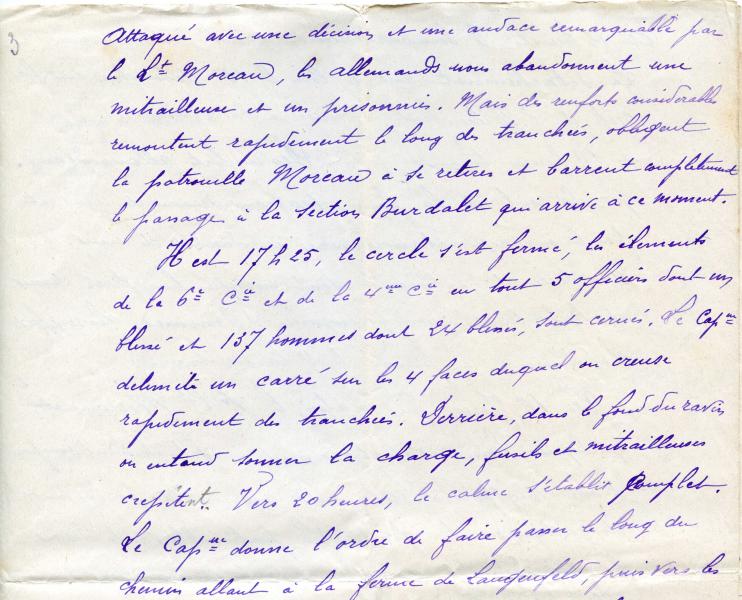 3
Attaqué avec une décision et une audace remarquable par
le Lt Moreau, les allemands nous abandonnent une
mitrailleuse et un prisonnier. Mais des renforts considérables
remontent rapidement le long des tranchées, obligent
la patrouille Moreau à se retirer et barrent complètement
le passage à la section Burdalet qui arrive à ce moment.
Il est 17h25, le cercle s'est fermé, les élements
de la 6e Cie et de la 4me Cie en tout 5 officiers dont un
blessé et 137 hommes dont 24 blessés, sont cernés. Le Capne
delimite un carré sur les 4 faces duquel on creuse
rapidement des tranchées. Derrière, dans le fond du ravin
on entend sonner la charge, fusils et mitrailleuses
crepitent. Vers 20 heures, le calme s'établit complet.
Le Capne donne l'ordre de faire passer le long du
chemin allant à la ferme de Langenfeld, puis vers les